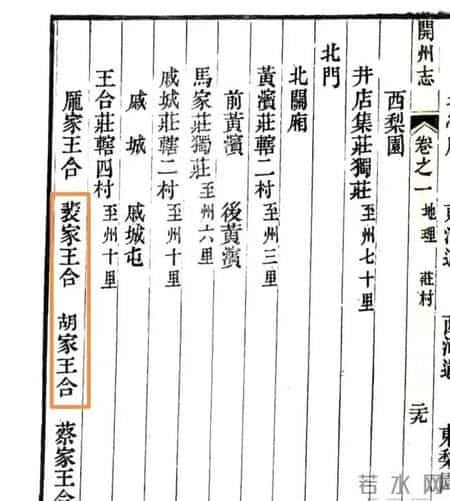 開州志 卷之一 地理 莊村 二九
西梨園
井店集莊獨莊 至州七十里
北門
北關廂
黃濱莊轄二村 至州三里
前黃濱 後黃濱
馬家莊獨莊 至州六里
戚城莊轄二村 至州十里
戚城 戚城屯
王合莊轄四村 至州十里
龐家王合 裴家王合 胡家王合 蔡家王合
若水网